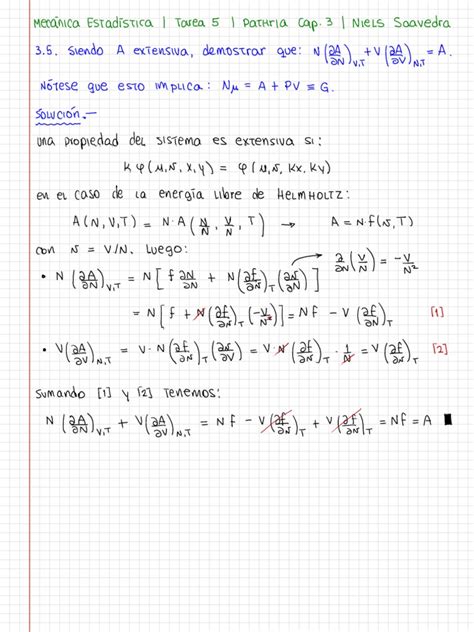 Mecánica Estadística | Tarea 5 | Pathria Cap. 3 | Niels Saavedra
3.5. Siendo A extensiva, demostrar que: N(∂A/∂N)_{V,T} + V(∂A/∂V)_{N,T} = A.
Nótese que esto implica: Nμ = A + PV ≡ G.
Solución.-
una propiedad del sistema es extensiva si:
k φ(μ, v, x, y) = φ(μ, v, kx, ky)
en el caso de la energía libre de Helmholtz:
A(N, V, T) = N·A(N/N, V/N, T) → A = N·f(v, T)
con v = V/N. Luego:
• N(∂A/∂N)_{V,T} = N[f ∂N/∂N + N(∂f/∂v)_T (∂v/∂N)] → ∂/∂N (V/N) = -V/N²
= N[f + N(∂f/∂v)_T (-V/N²)] = Nf - V(∂f/∂v)_T [1]
• V(∂A/∂V)_{N,T} = V·N(∂f/∂v)_T (∂v/∂V) = V·N(∂f/∂v)_T · 1/N = V(∂f/∂v)_T [2]
Sumando [1] y [2] tenemos:
N(∂A/∂N)_{V,T} + V(∂A/∂V)_{N,T} = Nf - V(∂f/∂v)_T + V(∂f/∂v)_T = Nf = A ■